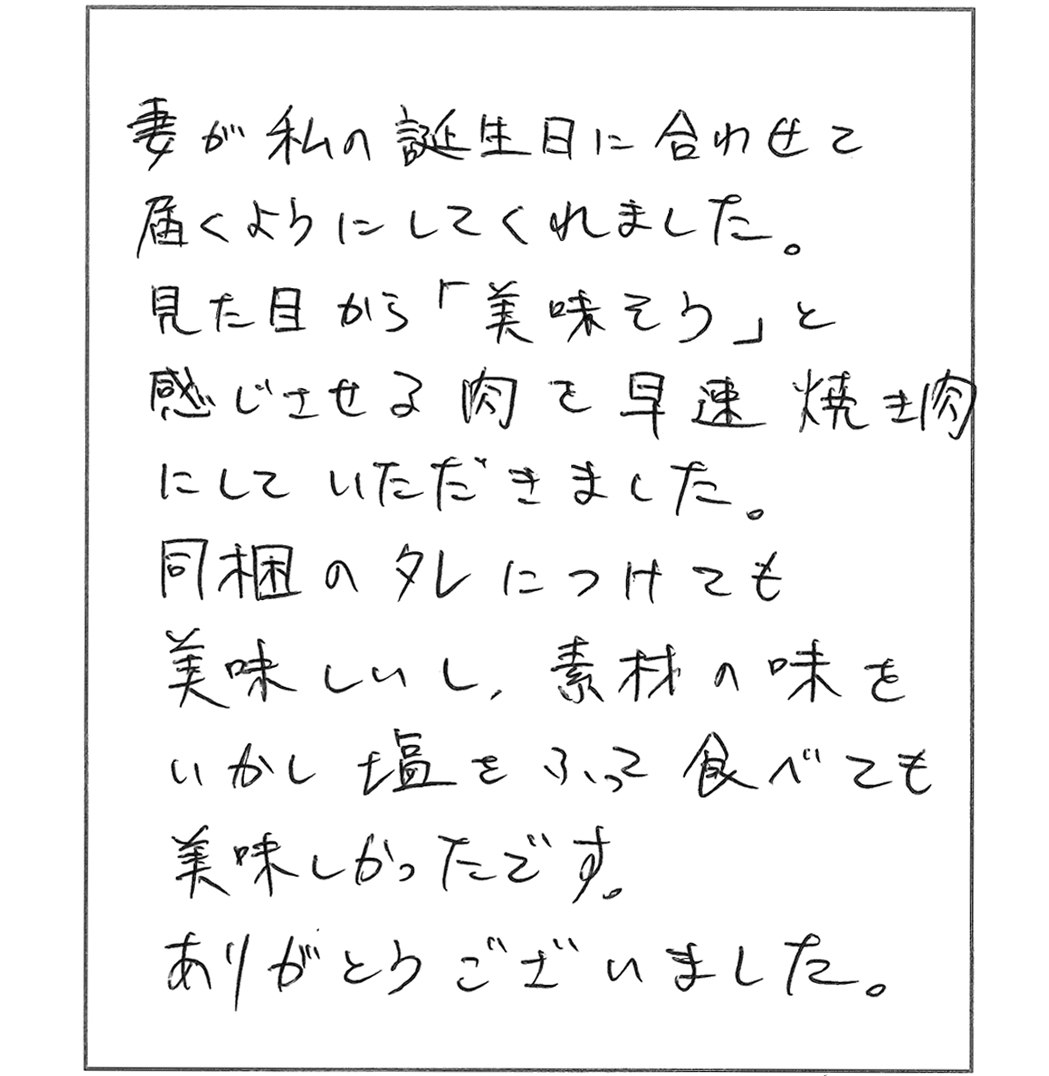 妻が私の誕生日に合わせて
届くようにしてくれました。
見た目から「美味そう」と
感じさせる肉を早速焼き肉
にしていただきました。
同梱のタレにつけても
美味しいし、素材の味を
いかし塩をふって食べても
美味しかったです。
ありがとうございました。